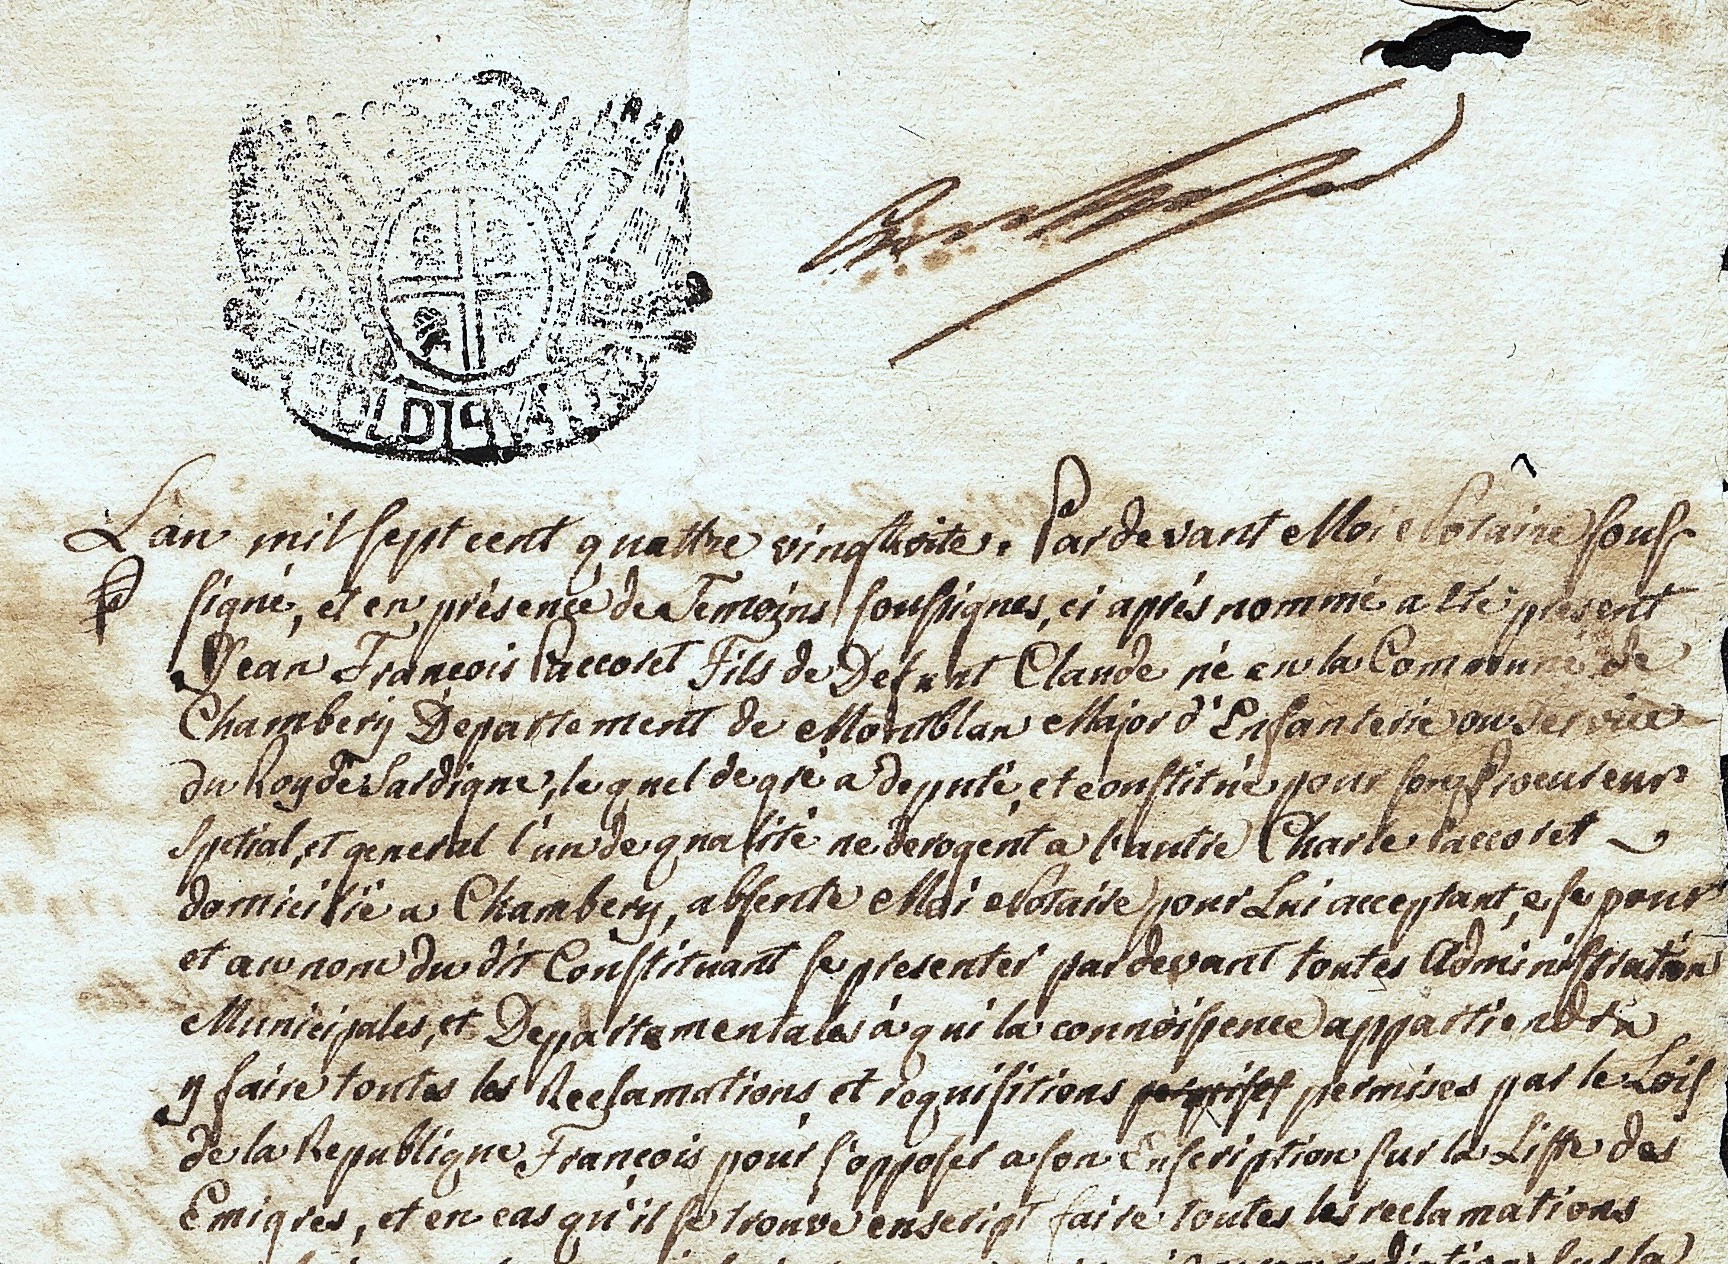 SOLDI QVAT
Lan mil sept cent quattre vingt
Par devant Moi Notaire sous
signé, et en présence de Temoins soussignes, ci aprés nommé a eté présent
Jean François Paccoret Fils de Defunt Claude né en la Commune de
Chambery Departement de Montblan Major d'Enfanterie au Service
du Roy de Sardigne, le quel de gré a deputé, et constitué pour son Procureur
spetial, et general l'un de qualité ne derogent a l'autre Charle Paccoret
domicilié a Chambery, absente Moi Notaire pour Lui acceptant, e se pour
et au nom du dit Constituant se presenter pardevant toutes Administration
Municipales, et Departementales à qui la connoissence appartiendra
y faire toutes les Reclamations et requisitions permises par le Lois
de la Republique François pour s'opposer a son Enscription sur la Liste des
Emigres, et en cas qu'il se trouve enscript faire toutes les reclamations
sur la